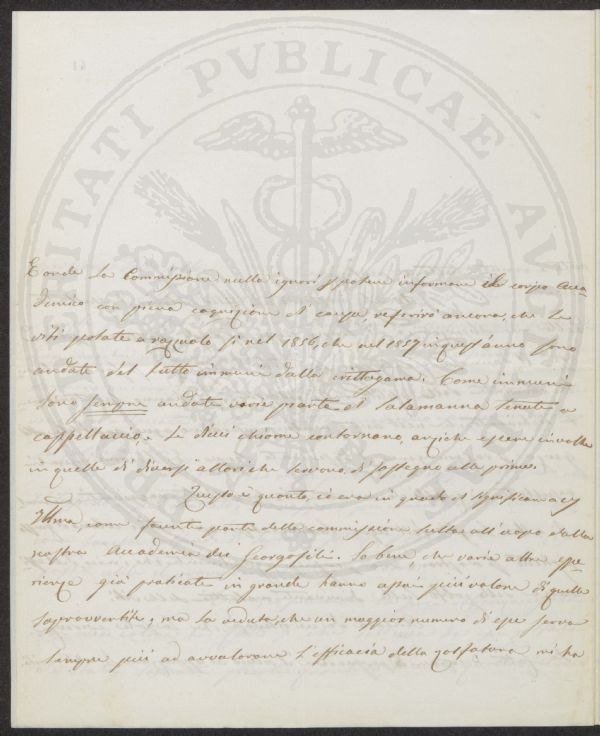 PROSPERITATI PVBLICAE AVGENDAE
E onde la Commissione nulla ignori, e possa informare il corpo Acca=
demico con piena cognizione di causa, referirò ancora, che le
viti potate a sì nel 1856, che nel 1857 in quest'anno sono
andate del tutto immuni dalla crittogama. Come immuni
sono sempre andate varie piante di Salamanna tenute a
cappellaccio. Le chiome contornano, anziché essere involte
in quelle di diversi alberi che servono di sostegno alle prime.
Questo è quanto, ero in grado di significare a
Illma, come facente parte della commissione eletta all'uopo dalla
nostra Accademia dei Georgofili. So bene, che varie altre espe=
rienze già praticate in grande hanno assai più valore di quelle
sopravvertite, ma la veduta, che un maggior numero di esse serva
sempre più ad avvalorare l'efficacia della zolfatura mi ha